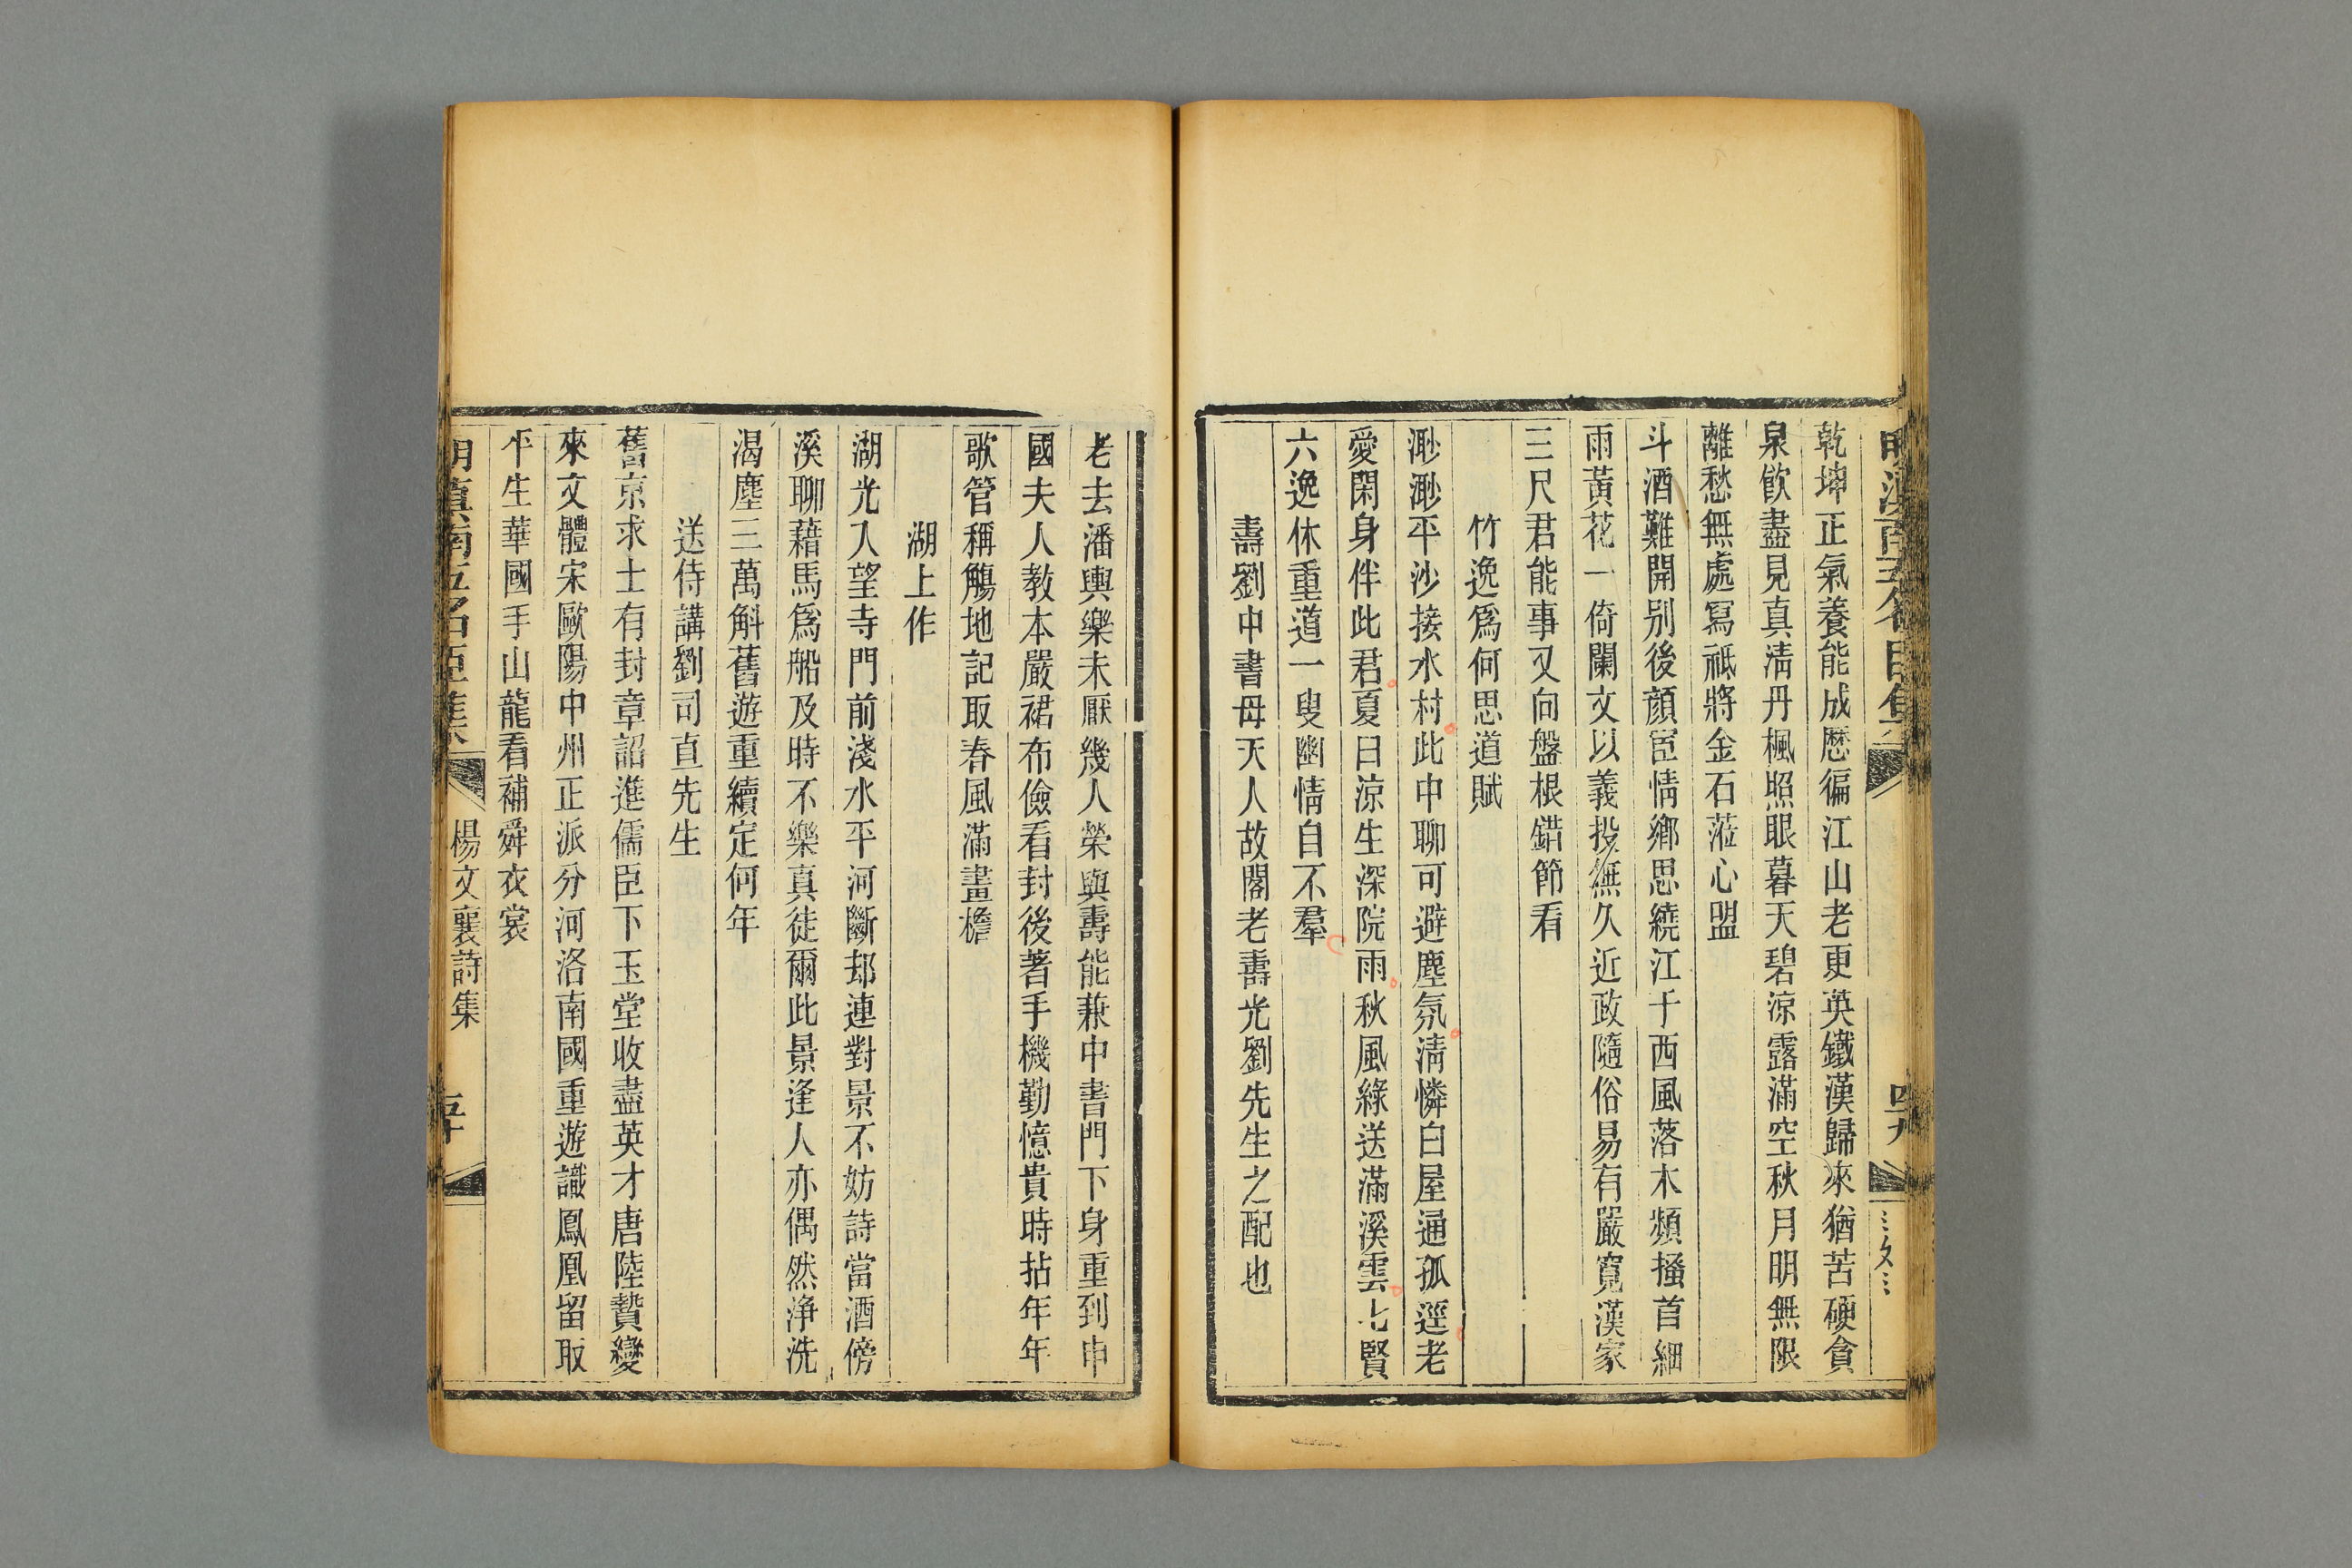 乾坤正氣養能成歴徧江山老更英鐵漢歸來猶苦硬貪
泉飮盡見真淸丹楓照眼暮天碧涼露滿空秋月明無限
離愁無處寫祗將金石蒞心盟
斗酒難開别後顔宦情鄉思繞江干西風落木頻搔首細
雨黃花一倚闌文以義投無久近政隨俗易有嚴寬漢家
三尺君能事又向盤根錯節看
竹逸爲何思道賦
渺渺平沙接水村此中聊可避塵氛淸憐白屋通孤逕老
愛閑身伴此君夏日涼生深院雨秋風綠送滿溪雲七賢
六逸休重道一叟幽情自不羣
壽劉中書母天人故閣老壽光劉先生之配也
老去潘輿樂未厭幾人榮與壽能兼中書門下身重到申
國夫人教本嚴裙布儉看封後著手機勤憶貴時拈年年
歌管稱觴地記取春風滿畫檐
湖上作
湖光入望寺門前淺水平河斷却連對景不妨詩當酒傍
溪聊藉馬爲船及時不樂真徒爾此景逢人亦偶然浄洗
渴塵三萬斛舊遊重續定何年
送侍講劉司直先生
舊京求士有封章詔進儒臣下玉堂收盡英才唐陸贄變
來文體宋歐陽中州正派分河洛南國重遊識鳳凰留取
平生華國手山龍看補舜衣裳
明滇南五名臣集
楊文襄詩集
五十